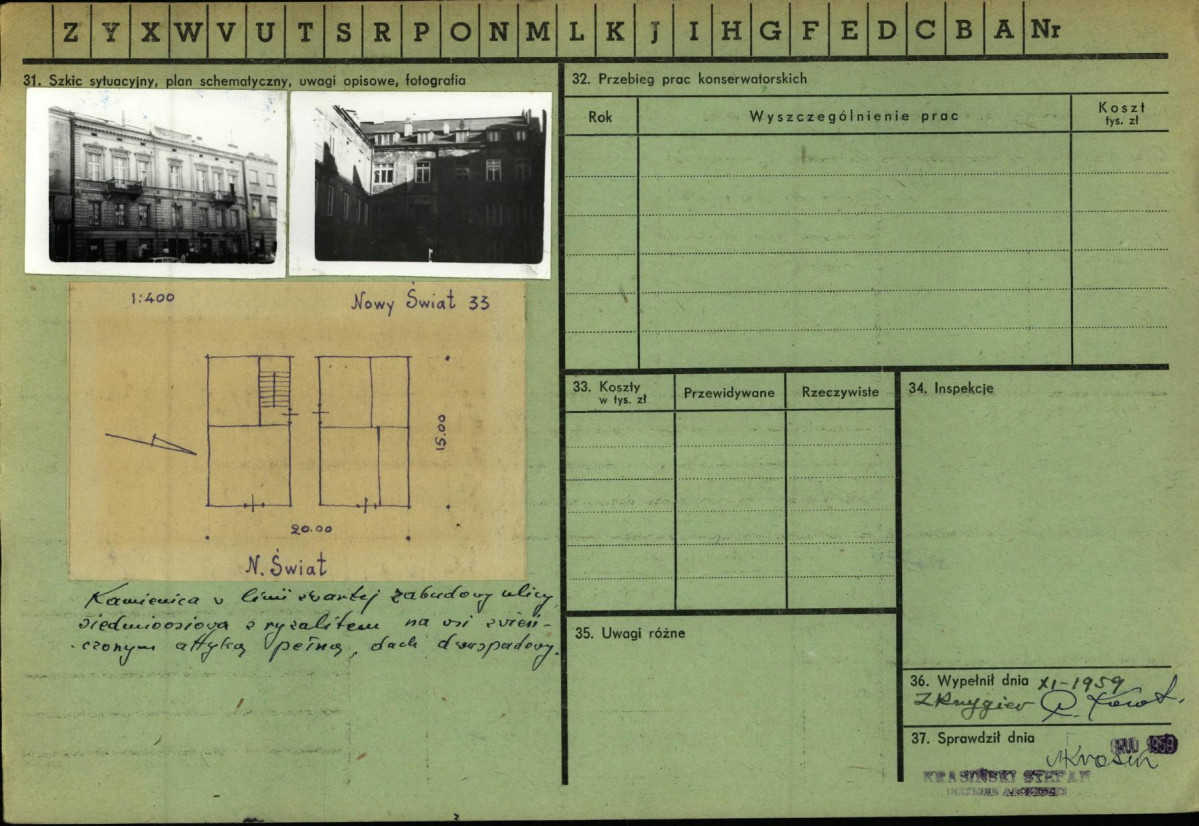 Z Y X W V U T S R P O N M L K J I H G F E D C B A Nr
31. Szkic sytuacyjny, plan schematyczny, uwagi opisowe, fotografia
1:400 Nowy Świat 33
15.00
20.00
N. Świat
Kamienica w linii zwartej zabudowy ulicy,
siedmioosiowa z ryzalitem na osi zwień-
czonym attyką pełną, dach dwuspadowy.
32. Przebieg prac konserwatorskich
Rok Wyszczególnienie prac Koszt
tys. zł
33. Koszty
w tys. zł
Przewidywane Rzeczywiste
34. Inspekcje
35. Uwagi różne
36. Wypełnił dnia XI-1959
37. Sprawdził dnia
1959
KRASIŃSKI STEFAN